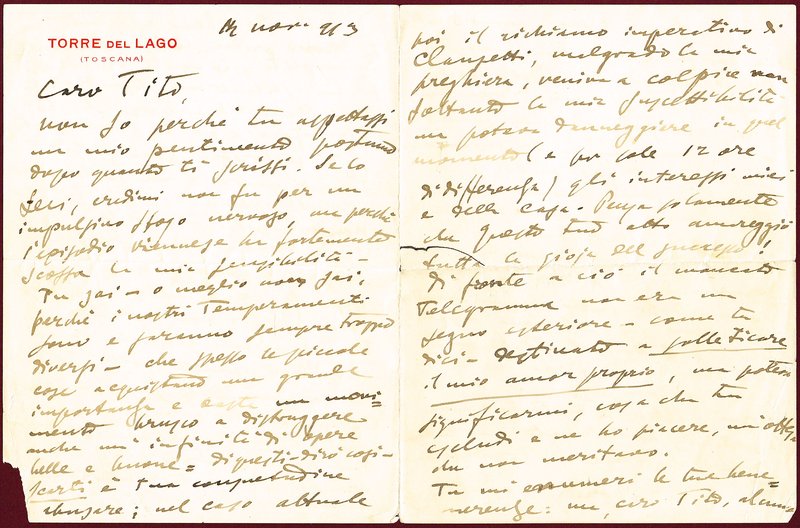 TORRE DEL LAGO
(TOSCANA)
nov. 913
Caro Tito,
non so perchè tu aspettassi
un mio pentimento postumo
dopo quanto ti scrissi. Se lo
feci, credimi non fu per un
impulsivo sfogo nervoso, ma perchè
l'episodio viennese ha fortemente
scossa la mia sensibilità -
Tu sai - o meglio non sai,
perchè i nostri temperamenti
sono e saranno sempre troppo
diversi - che spesso le piccole
cose acquistano una grande
importanza e basta un movi=
mento brusco a distruggere
anche un'infinità di opere
belle e buone = di questi - dirò così -
scatti è tua consuetudine
abusare; nel caso attuale
poi il richiamo imperativo di
Clausetti, malgrado la mia
preghiera, veniva a colpire non
soltanto la mia suscettibilità
ma poteva danneggiare in quel
momento (e per sole 12 ore
di differenza) gli interessi miei
e della Casa. Pensa solamente
che questo tuo atto amareggiò
tutta la gioja del successo!
Di fronte a ciò il mancato
telegramma non era un
segno esteriore - come tu
dici - destinato a solleticare
il mio amor proprio, ma poteva
significarmi, cosa che tu
escludi e ne ho piacere, un'offesa
che non meritavo.
Tu mi enumeri le tue bene=
merenze: ma, caro Tito, alcune